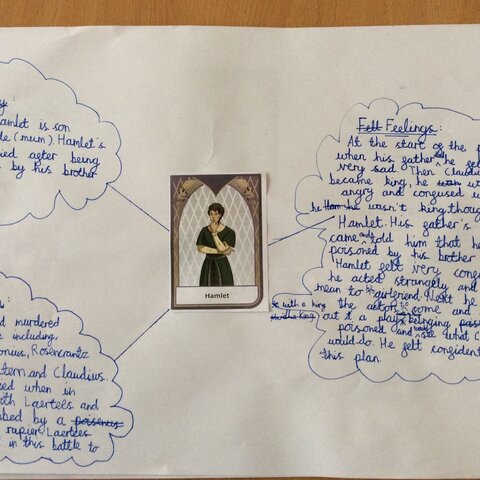 amlet is son
(mum) Hamlet's
ied after being
by his brother
murdered
including,
onius, Rosencrantz
tern and Claudius.
ed when in
oth Laertes and
bbed by a
rapier Laertes
in this battle to
Hamlet
Fell Feelings:
At the start of the
when his father
very sad. Then Claudiu
became king, he was
angry and confused
he wasn't king though
Hamlet. His father's
came and told him that he
poisoned by his brother
Hamlet felt very con
he acted strangely and
mean to his girlfriend. Next he
the actors to come and
out it a play belonging
with a king
poisoned and see what C
would do. He felt confident
this plan.